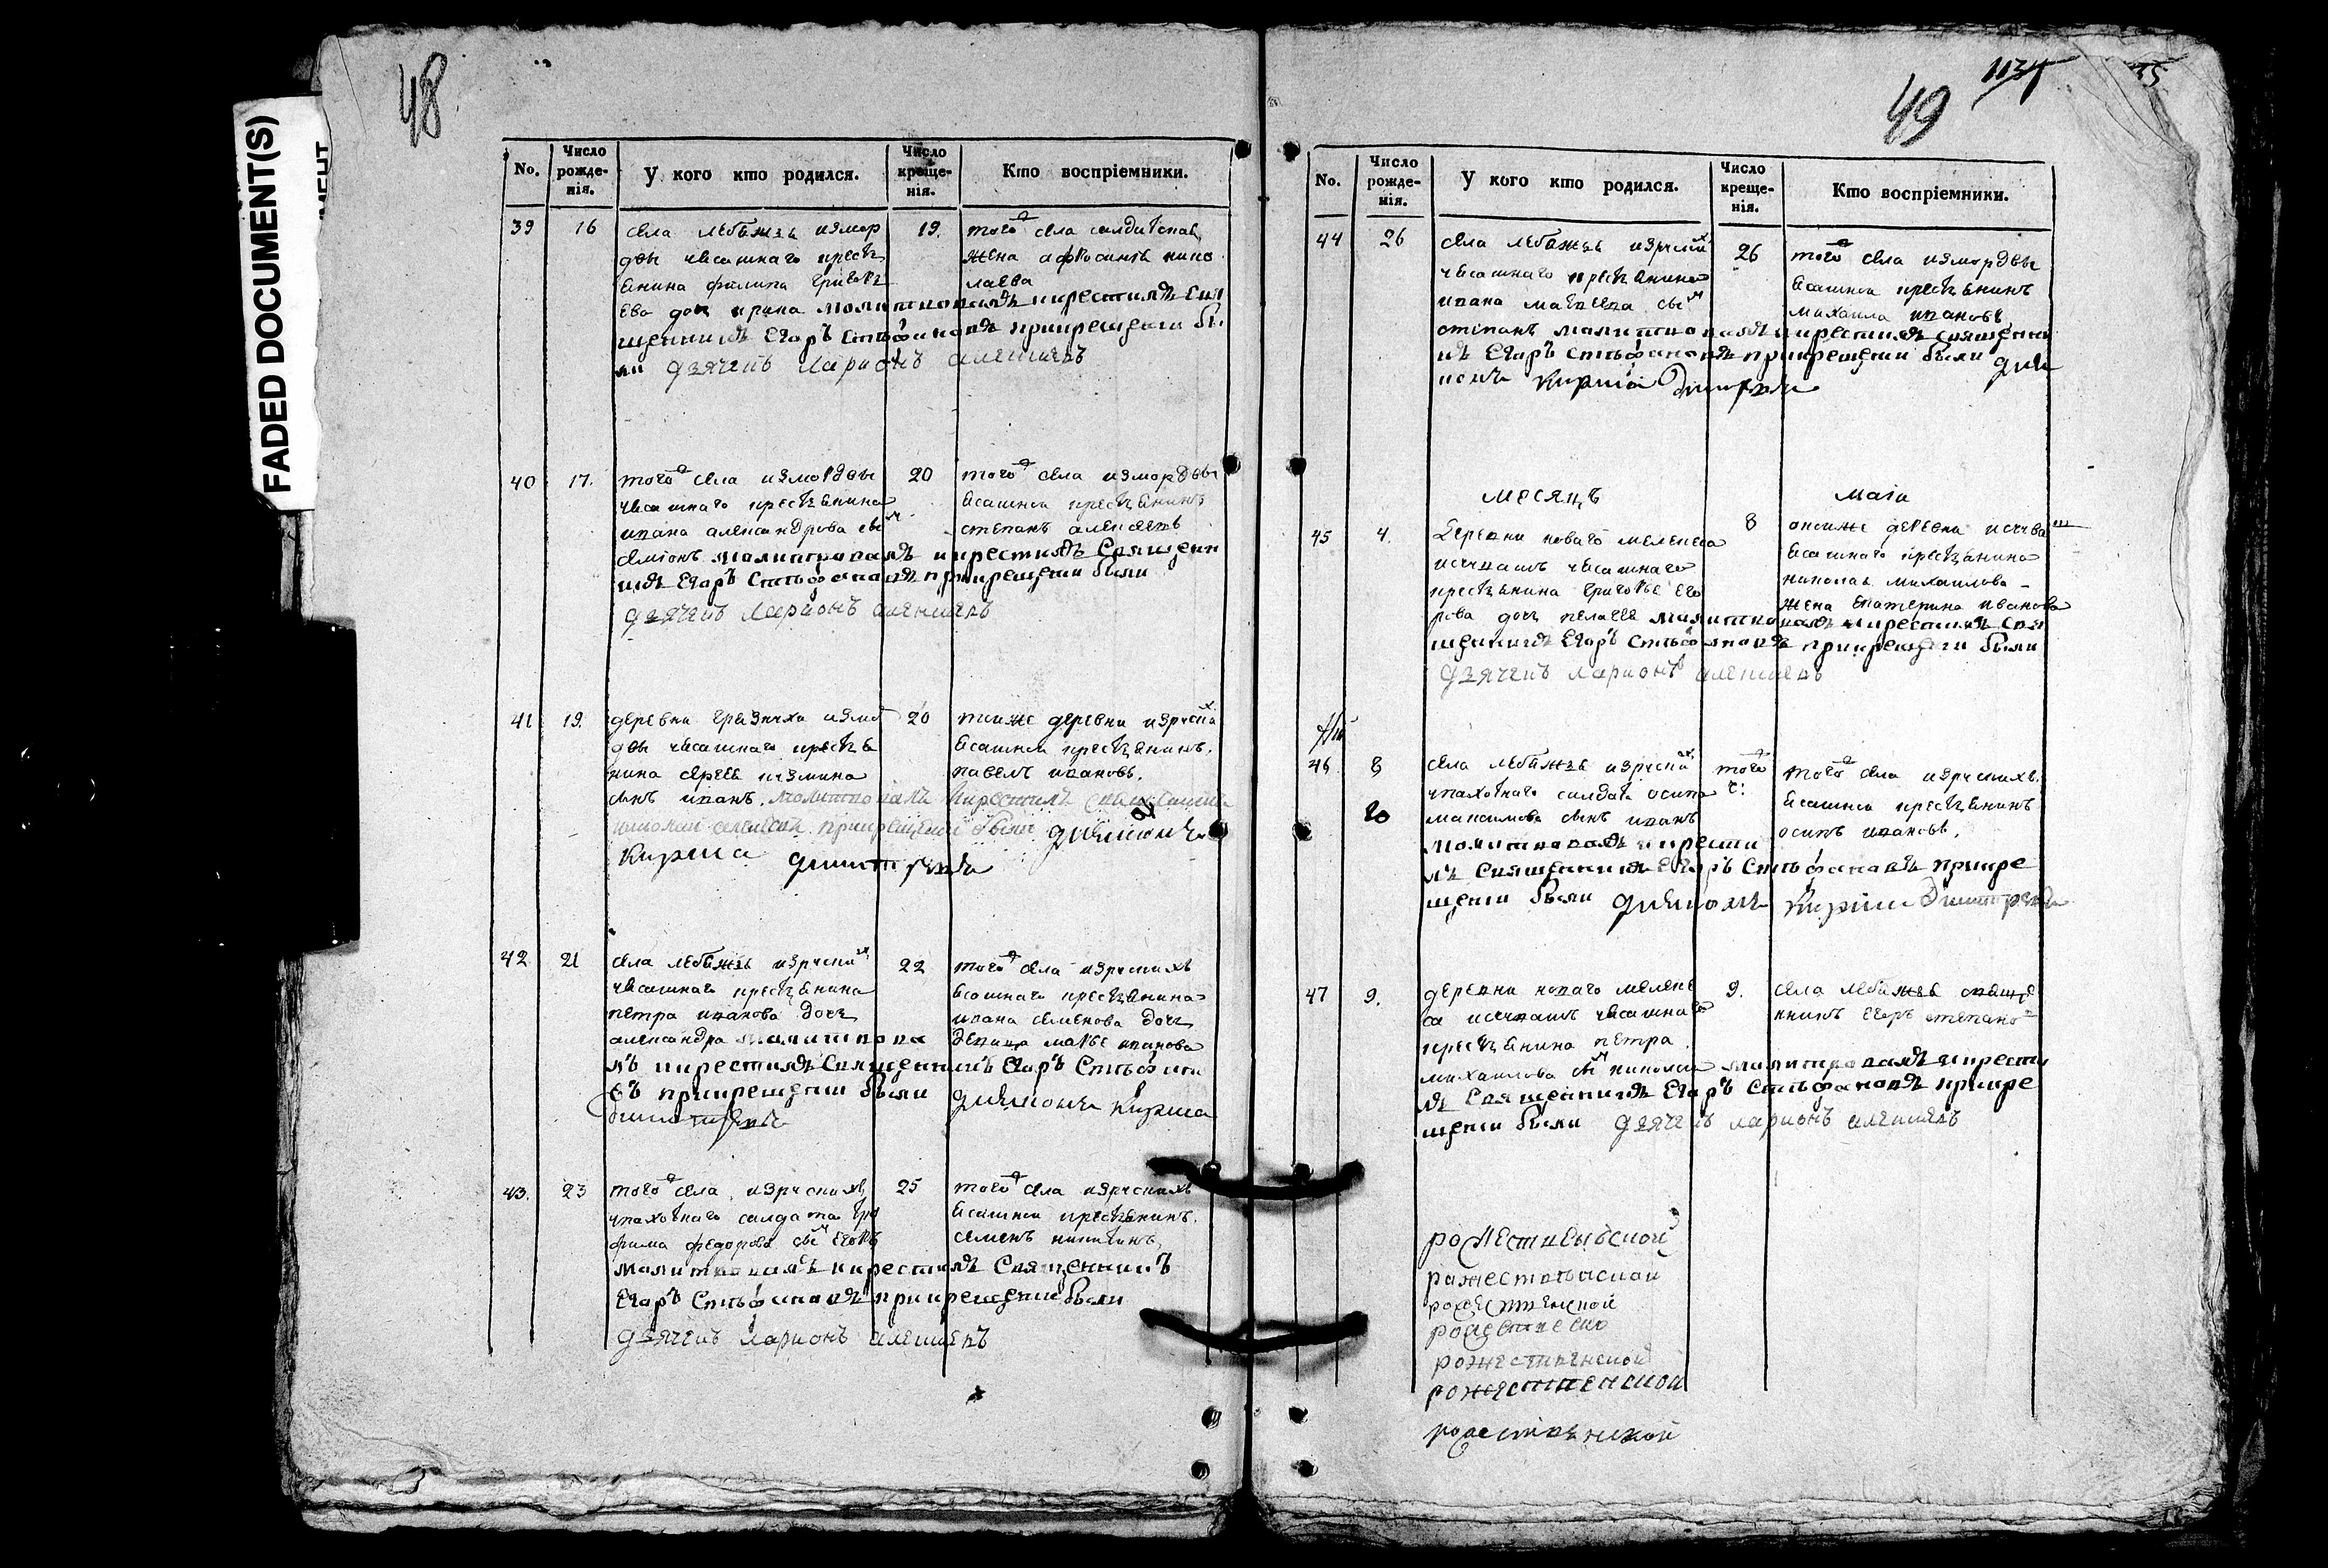 48
FADED DOCUMENT(S)
No.
Число рожде-нія.
У кого кто родился.
Число креще-нія.
Кто воспріемники.
39
16
села лебяжья измор
двы ясашнаго крест
янина филипа григорь
ева дочь ирина молитвовалъ и крестилъ свя
щенникъ Егоръ Стефановъ при крещени бы
ли дьячекъ Ларионъ алексеевъ
19.
того села солдатская
жена афросинья нико
лаева
40
17.
того села измордвы
ясашнаго крестьянина
ивана александрова сын
семионъ молитвовалъ и крестилъ Священи
къ Егоръ Стефановъ при крещени были
дьячекъ Ларионъ алексеевъ
20
того села измордвы
ясашной крестьянинъ
степанъ алексеевъ
41
19.
деревни грязнуха измор
двы ясашнаго крестья
нина сергея кузмина
сынъ иванъ. молитвовалъ и крестилъ священник
при крещени были дияконъ
Кирила димитревъ
20
тоиже деревни изруских
ясашной крестьянинъ.
павелъ ивановъ.
42
21
села лебяжья изруских
ясашнаго крестьянина
петра иванова дочь
александра молитвова
лъ и крестилъ Священникъ Егоръ Стефано
въ при крещени были дияконъ Кирила
димитревъ
22
того села изруских
ясашнаго крестьянина
ивана семенова дочь
девица марья иванова
43.
23
того села изруских
пахотнаго салдата тро
фима федорова сын егоръ
молитвовалъ и крестилъ Священникъ
Егоръ Стефановъ при крещени были
дьячекъ Ларионъ алексеевъ
25
того села изруских
ясашной крестьянинъ.
семенъ никитинъ
49
1134
35
No.
Число рожде-нія.
У кого кто родился.
Число креще-нія.
Кто воспріемники.
44
26
села лебяжья изруских
ясашнаго крестьянина
ивана матвеева сын
степанъ молитвовалъ и крестилъ священни
къ Егоръ Стефановъ при крещени были дия
конъ Кирила Димитревъ
26
того села измордвы
ясашной крестьянинъ
михаила ивановъ
месяцъ маия
45
4.
деревни новаго мелекеса
ясашнаго
крестьянина григорья его
рова дочь пелагея молитвовалъ и крестилъ свя
щенникъ Егоръ Стефановъ при крещени были
дьячекъ Ларионъ алексеевъ
8
онойже деревни
ясашнаго крестьянина
николая михаилова
жена екатерина иванова
46
8
20
села лебяжья изруских
пахотнаго салдата осипа
максимова сынъ иванъ
молитвовалъ и крести
лъ Священникъ Егоръ Стефановъ при кре
щени были дияконъ Кирила Димитревъ
того ч:
того села изруских
ясашной крестьянинъ
осипъ ивановъ.
47
9.
деревни новаго мелеке
са ясашнаго
крестьянина петра
михаилова сын николай молитвовалъ и крести
лъ Священникъ Егоръ Стефановъ при кре
щени были дьячекъ ларионъ алексеевъ
9.
села лебяжья свяще
нникъ егоръ степано
рожественской
рожественской
рожественской
рожественской
рожественской